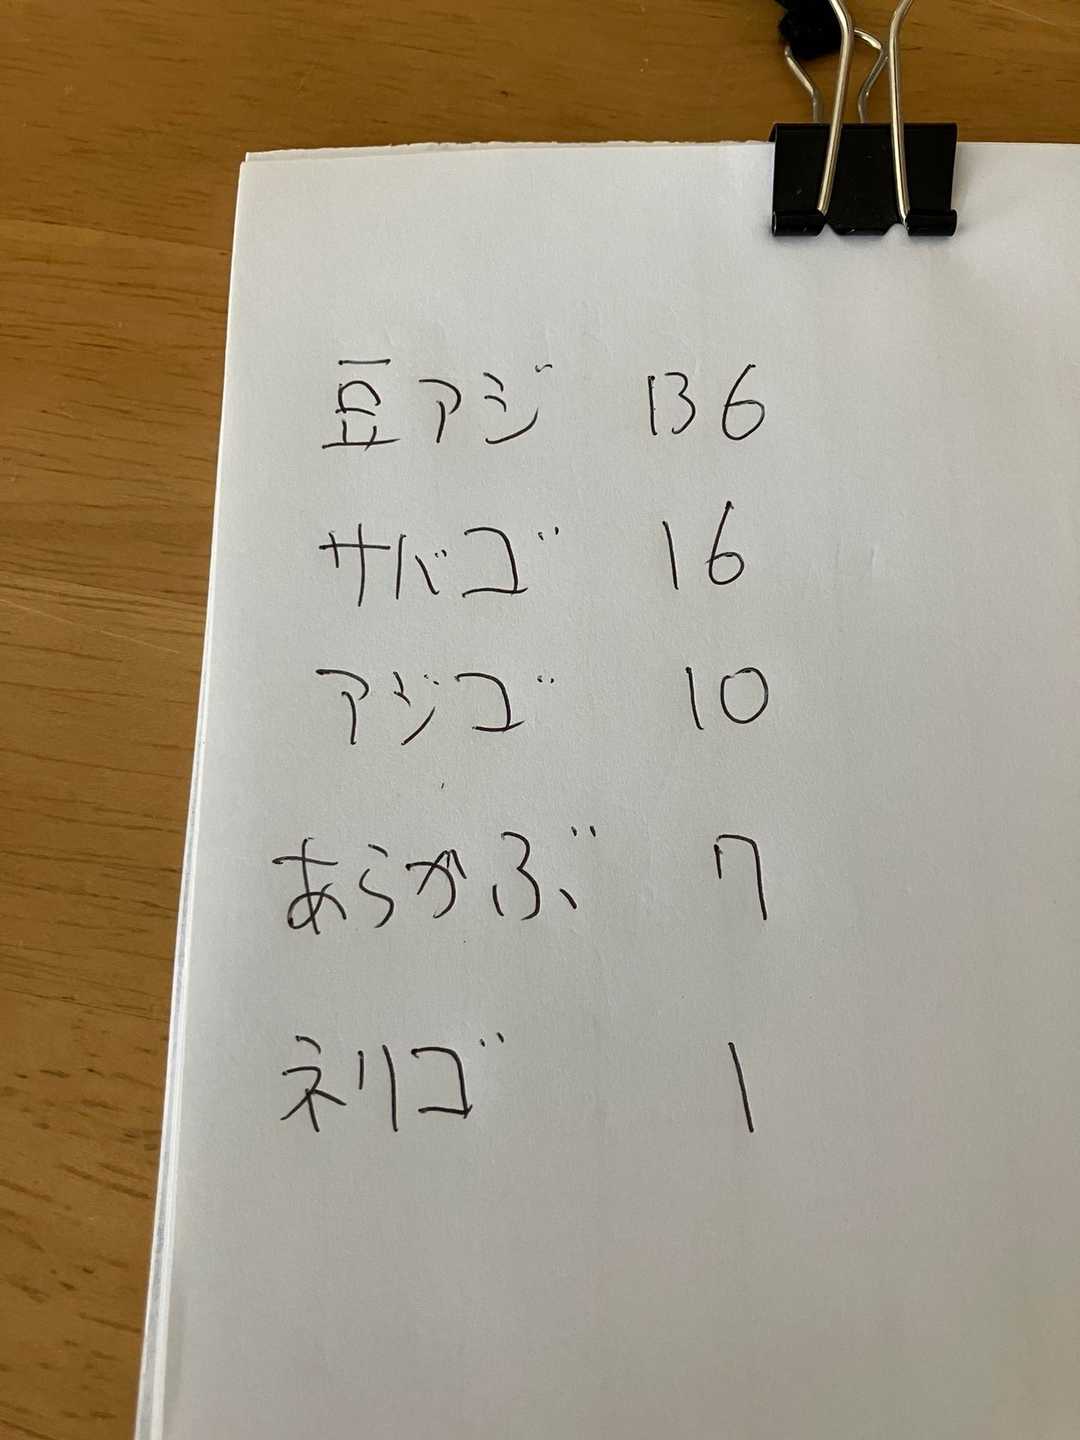 豆アジ 136
サバゴ 16
アジゴ 10
あらかぶ 7
ネリゴ 1